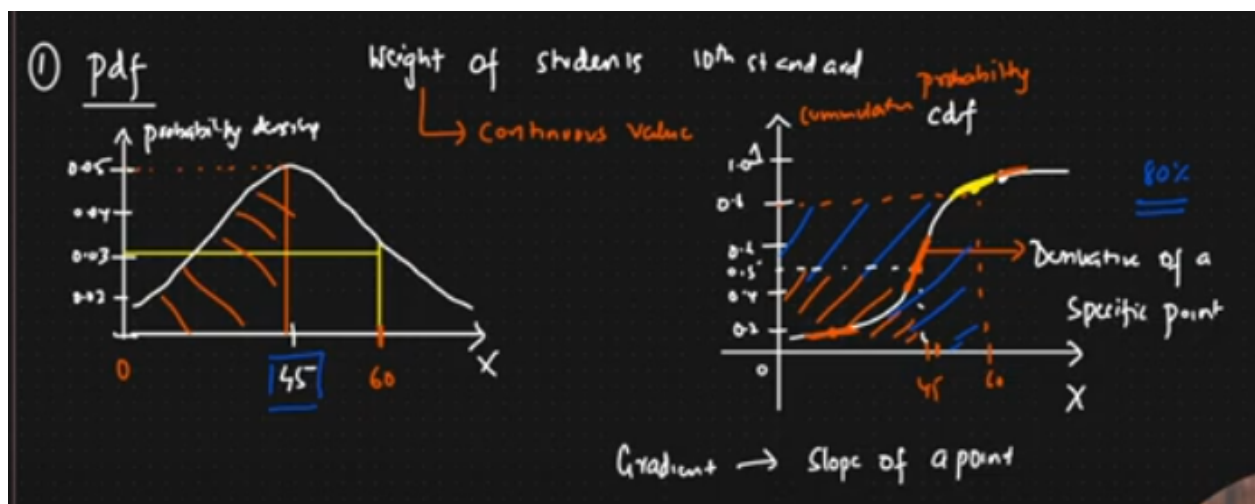 ① pdf
Weight of students 10th standard
→ Continuous value
probability density
0.05
0.04
0.03
0.02
0
45
60
X
probability
cdf
1.0
0.5
0.4
0.2
0
45
60
X
80%
Derivative of a
specific point
Gradient → Slope of a point